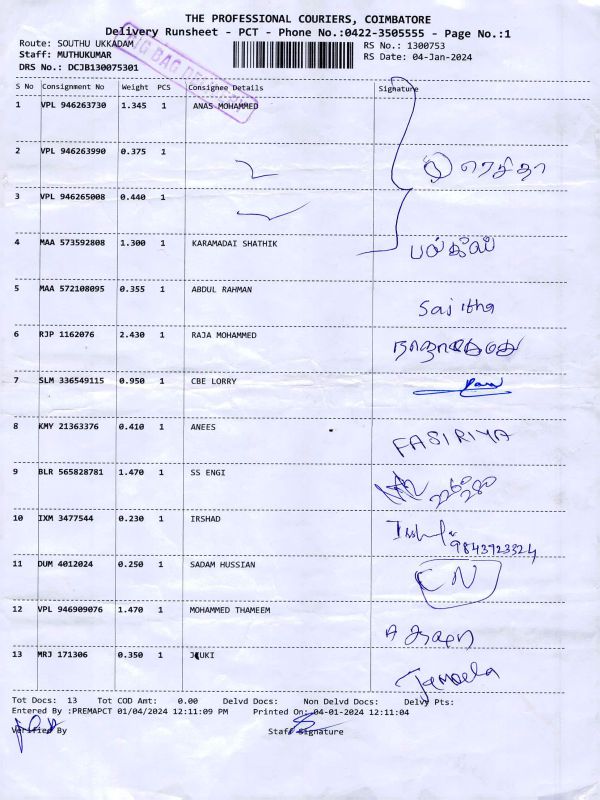 THE PROFESSIONAL COURIERS, COIMBATORE
Delivery Runsheet - PCT - Phone No.:0422-3505555 - Page No.:1
Route: SOUTHU UKKADAM RS No.: 1300753
Staff: MUTHUKUMAR RS Date: 04-Jan-2024
DRS No.: DCJB130075301
S No Consignment No Weight PCS Consignee Details Signature
1 VPL 946263730 1.345 1 ANAS MOHAMMED
2 VPL 946263990 0.375 1
3 VPL 946265008 0.440 1
4 MAA 573592808 1.300 1 KARAMADAI SHATHIK
5 MAA 572108095 0.355 1 ABDUL RAHMAN Sajitha
6 RJP 1162076 2.430 1 RAJA MOHAMMED
7 SLM 336549115 0.950 1 CBE LORRY
8 KMY 21363376 0.410 1 ANEES FASIRIYA
9 BLR 565828781 1.470 1 SS ENGI
10 IXM 3477544 0.230 1 IRSHAD
9843923324
11 DUM 4012024 0.250 1 SADAM HUSSIAN CN
12 VPL 946909076 1.470 1 MOHAMMED THAMEEM
13 MRJ 171306 0.350 1
Tot Docs: 13 Tot COD Amt: 0.00 Delvd Docs: Non Delvd Docs: Delvy Pts:
Entered By :PREMAPCT 01/04/2024 12:11:09 PM Printed On: 04-01-2024 12:11:04
Verified By Staff Signature